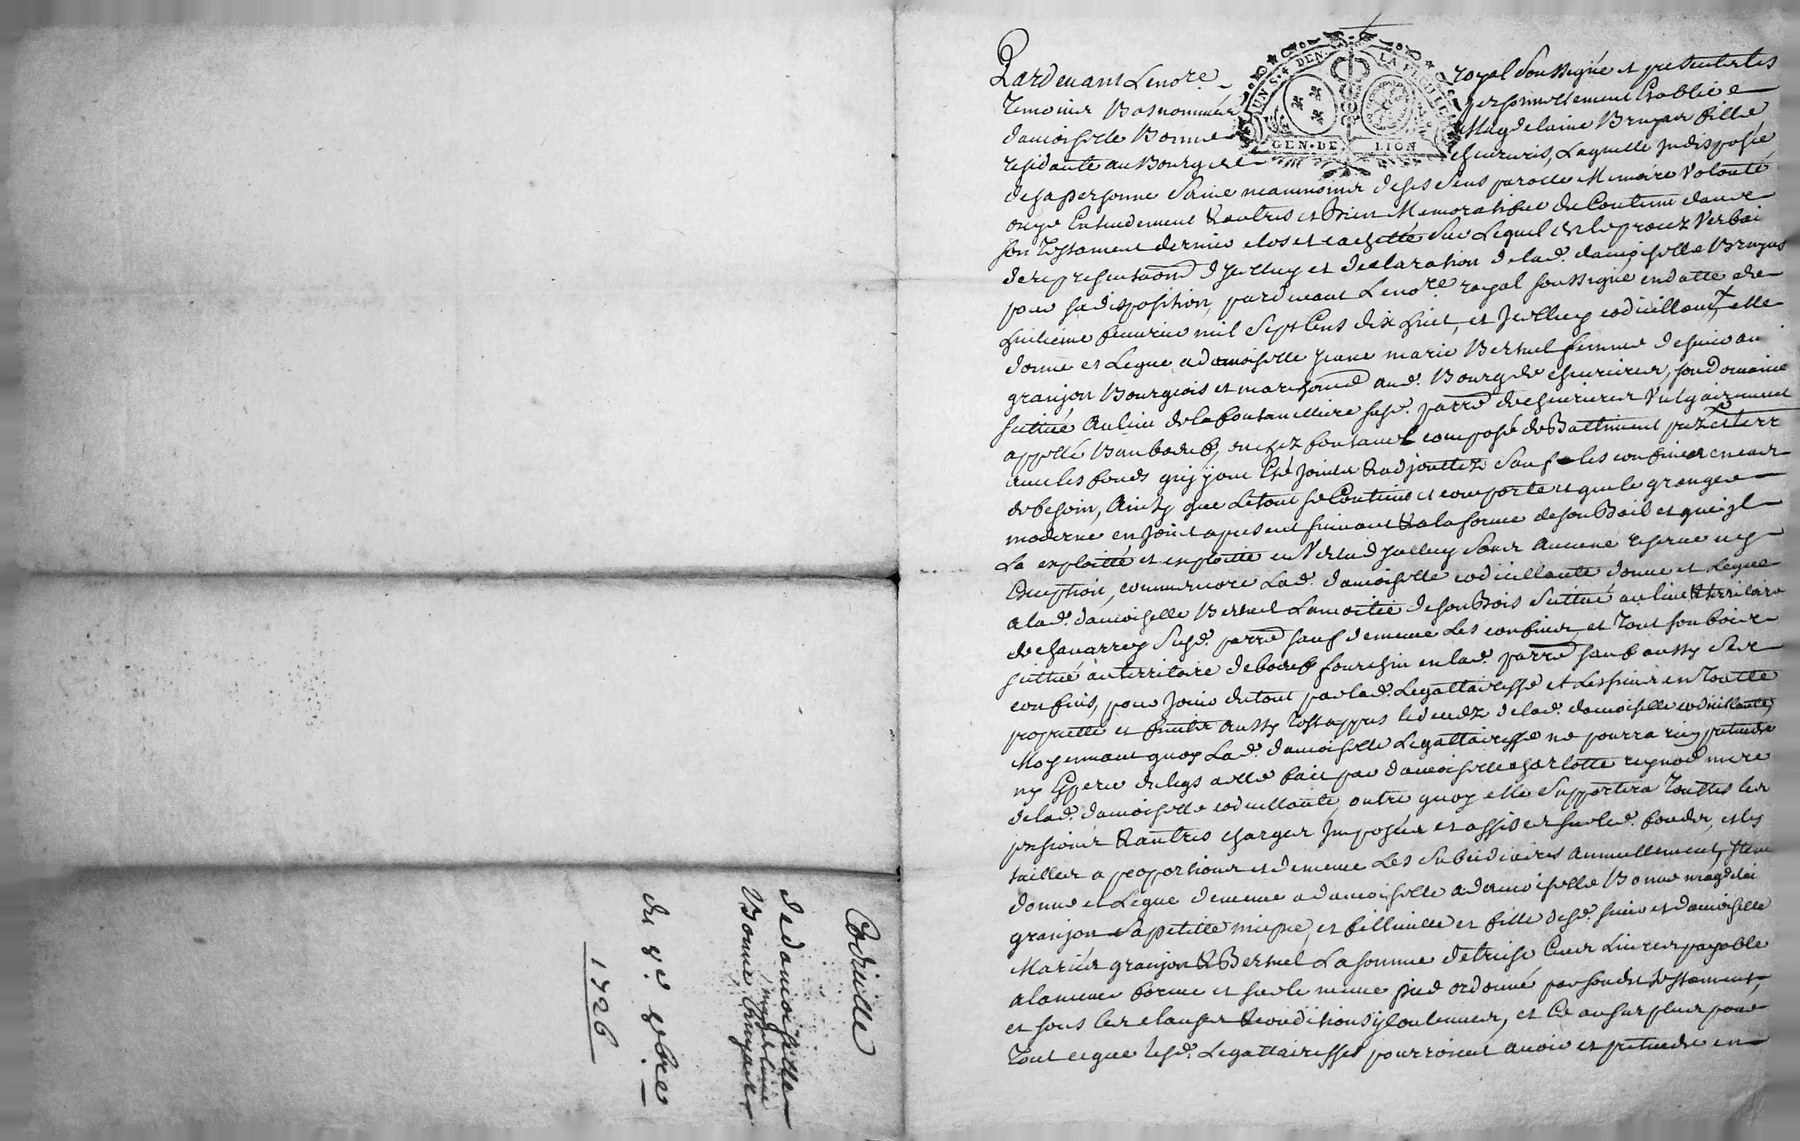 Pardevant Le no.re royal soussigné et presents les
temoins Basnommés personnellement Establie
damoiselle Bonne Magdelaine Bruyas fille
residante au Bourg de cheurieres, Laquelle Indisposée
UN S. 4 DEN. LA FEUILLE
GEN. DE LION
de sa personne saine neammoins de ses sens parolle Memoire Volonté
Entendement & autres et Bien Memorative du Contenu dans
son Testament dernier clos et cachetté sur Lequel est le procez Verbal
de representaon d'Icelluy et declaration de lad. damoiselle Bruyas
pour sa disposition, pardevant Le no.re royal soussigné en datte du
huitieme feurier mil sept Cens dix huit, et Icelluy codicillant, elle
donne et Legue a damoiselle Jeane marie Bernel femme de sieur
granjon Bourgeois et marchand aud. Bourg de cheurieres, son domaine
scittué Au lieu de la fontanelliere susd. parre de cheurieres Vulgairement
appellé composé de Battiment prez & terre
auec les fonds qui y ont Eté Joints & adjouttez sauf les confins en cas
de besoin, Ainsy que Le tout se Contient et comporte et que le granger
moderne en Jouit a present suivant & a la forme de son Bail et qu'il
La exploitté et exploitte en Vertu d'Icelluy sans Aucune reserve ny
Exception, comme encore Lad. damoiselle codicillante donne et Legue
a lad. damoiselle Bernel La moitie de son Bois scittué au lieu & territoire
de chauarrey susd. parre sauf de meme Les confins et Tout son bois
scittué au territoire de en lad. parre sauf aussy ses
confins, pour Jouir du tout par lad. Legattairesse et Les siens en Toutte
proprietté et aussy tost appres le deceds de lad. damoiselle codicillante,
Moyennant quoy Lad. damoiselle Legattairesse ne pourra rien pretendre
ny Esperer du legs a elle fait par damoiselle charlotte reynod mere
de lad. damoiselle codicillante, outre quoy elle supportera Touttes les
pensions & autres charges Imposées et assises sur led. fonds, et les
tailles a proportions et de meme Les subsidiaires Annuellement, Item
donne et Legue de meme a damoiselle a damoiselle Bonne magdelai
granjon sa petitte niepce, et filleuille et fille desd. sieur et damoiselle
Mariés granjon & Bernel La somme de treise Cens Liures payable
a la meme forme et sur le meme pied ordonné par sondit testament,
et sous les clauses & conditions y contenues, et Ce au surplus pour
Tout ce que lesd. Legattairesses pourroient auoir et pretendre en
Codicille
de damoiselle
Bonne magdelaine Bruyas
du 8.e 8bre
1726